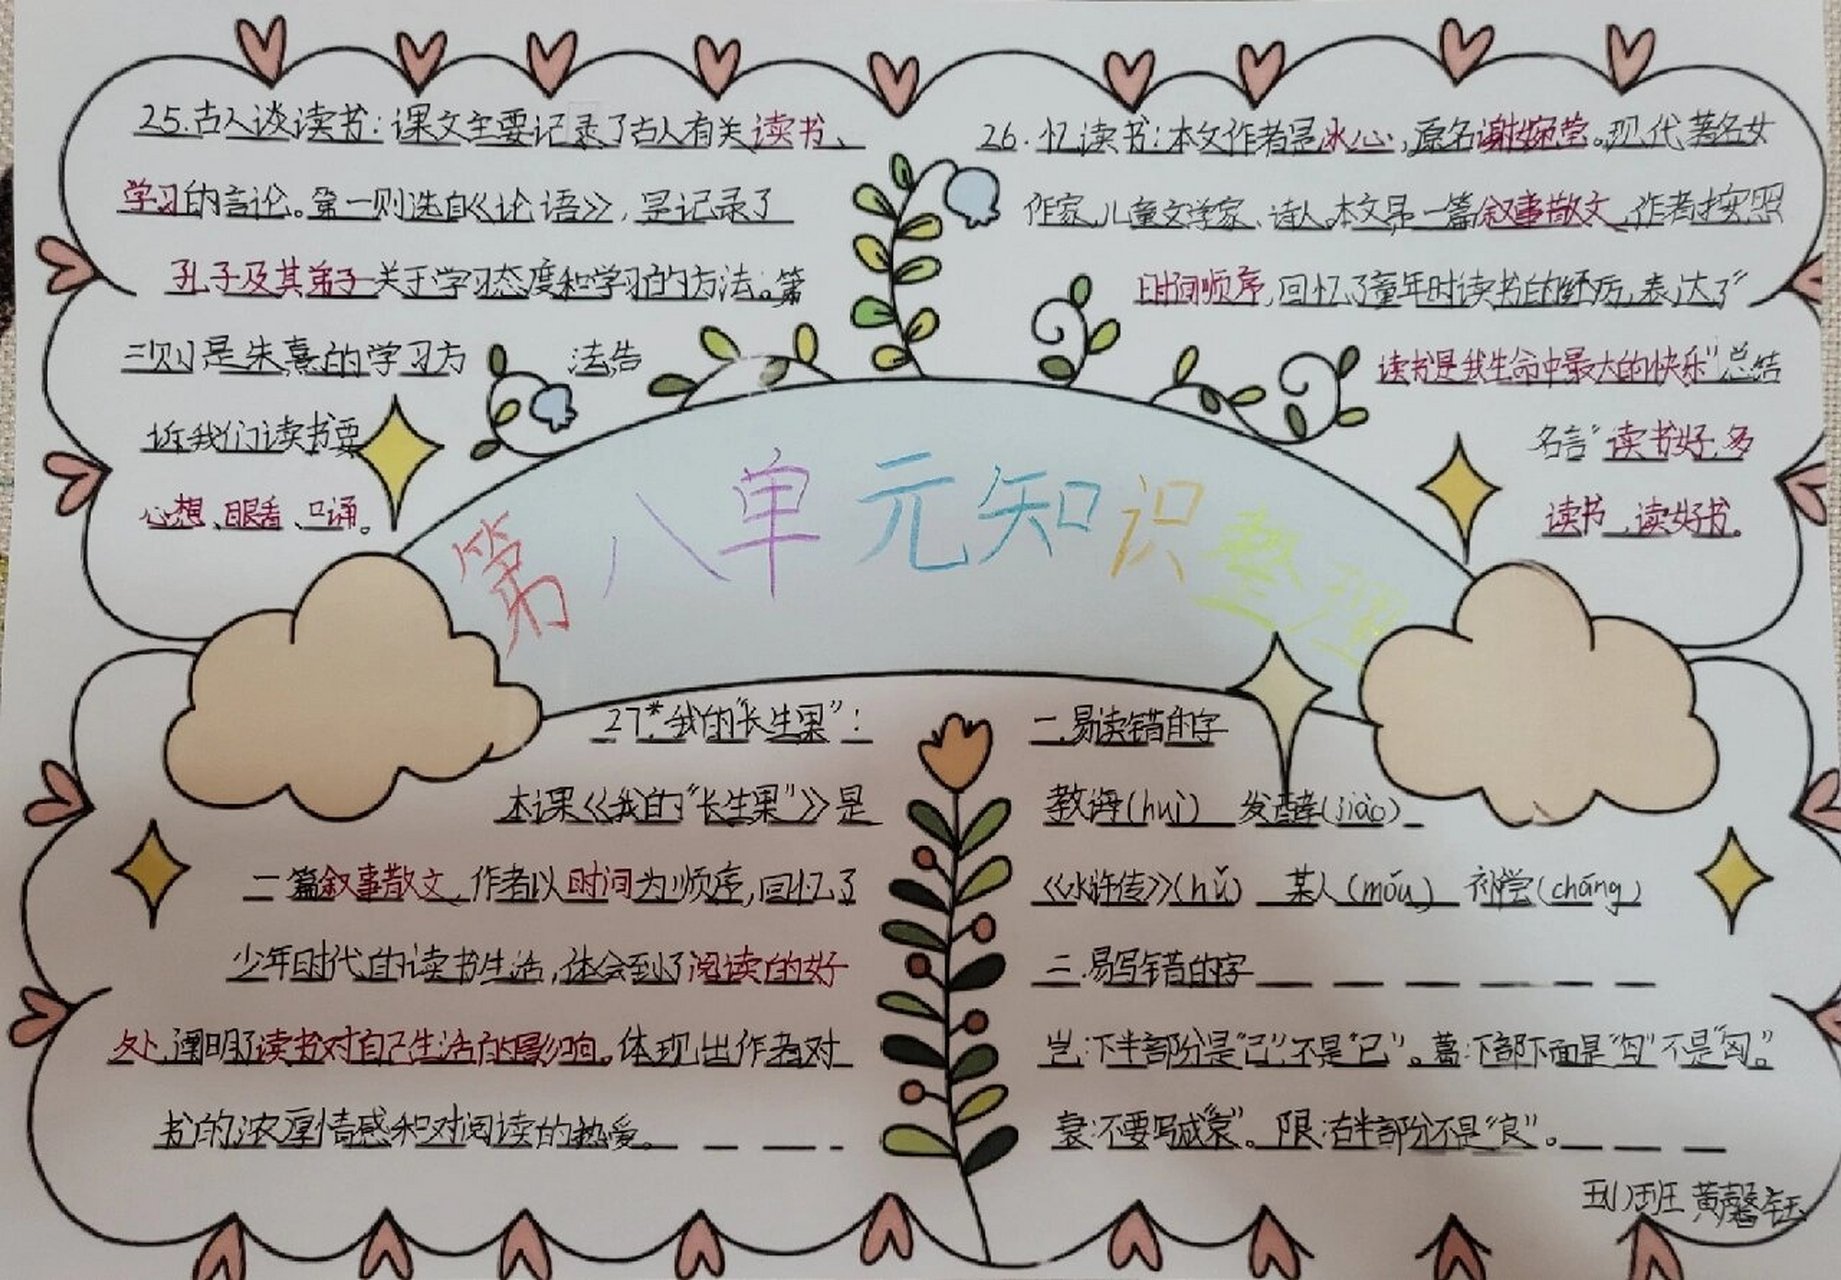 第八单元知识整理
25.古人谈读书：课文主要记录了古人有关读书、
学习的言论。第一则选自《论语》，是记录了
孔子及其弟子关于学习态度和学习的方法。第
三则是朱熹的学习方法,告
诉我们读书要
心想、眼看、口诵。
26.忆读书：本文作者是冰心,原名谢婉莹。现代著名女
作家,儿童文学家、诗人。本文是一篇叙事散文,作者按照
时间顺序,回忆了童年时读书的经历,表达了“
读书是我生命中最大的快乐”总结
名言“读书好,多
读书,读好书。
27.*我的“长生果”：
本课《我的“长生果”》是
一篇叙事散文,作者以时间为顺序,回忆了
少年时代的读书生活,体会到了阅读的好
处,阐明了读书对自己生活的影响。体现出作者对
书的浓厚情感和对阅读的热爱。
一.易读错的字
教诲(huì) 发酵(jiào)
《水浒传》(hǔ) 某人(mǒu) 补偿(cháng)
二.易写错的字
岂:下半部分是“己”不是“已”。葛:下部下面是“匂”不是“匃。”
衰:不要写成“哀”。限:右半部分不是“良”。
班 黄馨钰